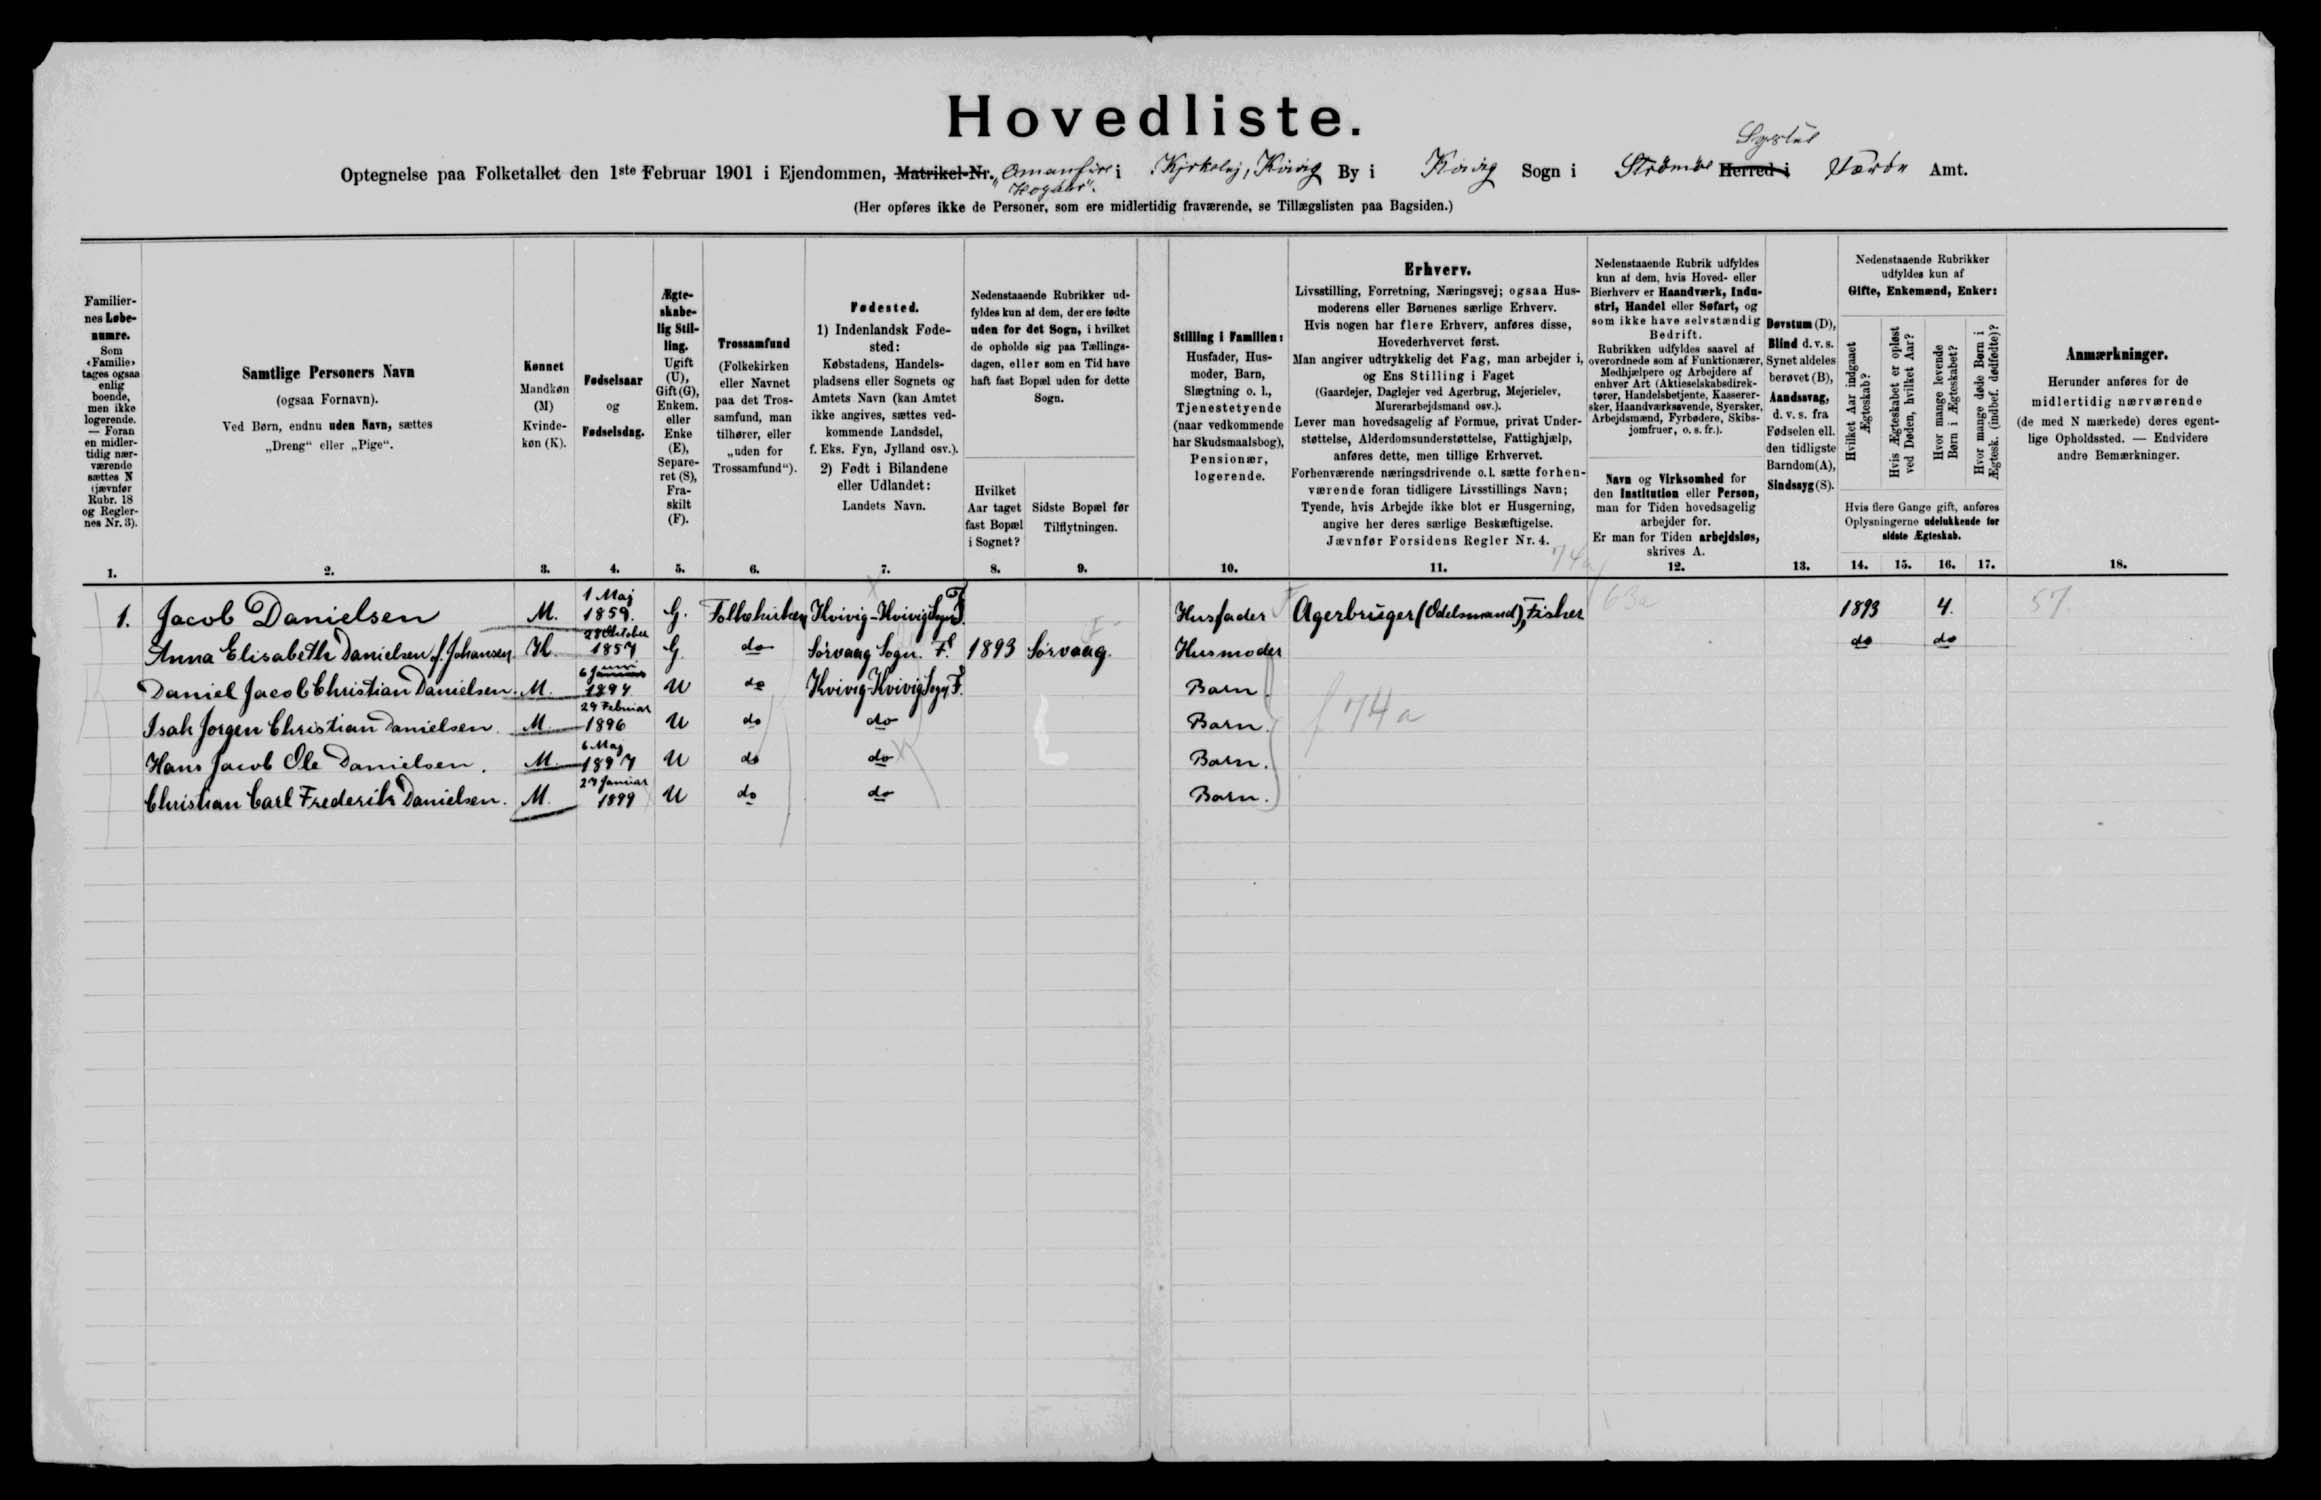 Hovedliste.
Syssel
Optegnelse paa Folketallet den 1ste Februar 1901 i Ejendommen, Matrikel-Nr. i Kvivig By i Kvivig Sogn i Strömö Herred i Færøe Amt.
(Her opføres ikke de Personer, som ere midlertidig fraværende, se Tillægslisten paa Bagsiden.)
Familier-
nes Løbe-
numre.
Som
«Familie»
tages ogsaa
enlig
boende,
men ikke
logerende.
— Foran
en midler-
tidig nær-
værende
sættes N
(jævnfør
Rubr. 18
og Regler-
nes Nr. 3).
1.
Samtlige Personers Navn
(ogsaa Fornavn).
Ved Børn, endnu uden Navn, sættes
„Dreng“ eller „Pige“.
2.
Kønnet
Mandkøn
(M)
Kvinde-
køn (K).
3.
Fødselsaar
og
Fødselsdag.
4.
Ægte-
skabe-
lig Stil-
ling.
Ugift
(U),
Gift (G),
Enkem.
eller
Enke
(E),
Separe-
ret (S),
Fra-
skilt
(F).
5.
Trossamfund
(Folkekirken
eller Navnet
paa det Tros-
samfund, man
tilhører, eller
„uden for
Trossamfund“).
6.
Fødested.
1) Indenlandsk Føde-
sted:
Købstadens, Handels-
pladsens eller Sognets og
Amtets Navn (kan Amtet
ikke angives, sættes ved-
kommende Landsdel,
f. Eks. Fyn, Jylland osv.).
2) Født i Bilandene
eller Udlandet:
Landets Navn.
7.
Nedenstaaende Rubrikker ud-
fyldes kun af dem, der ere fødte
uden for det Sogn, i hvilket
de opholde sig paa Tællings-
dagen, eller som en Tid have
haft fast Bopæl uden for dette
Sogn.
Hvilket
Aar taget
fast Bopæl
i Sognet?
8.
Sidste Bopæl før
Tilflytningen.
9.
Stilling i Familien:
Husfader, Hus-
moder, Barn,
Slægtning o. l.,
Tjenestetyende
(naar vedkommende
har Skudsmaalsbog),
Pensionær,
logerende.
10.
Erhverv.
Livsstilling, Forretning, Næringsvej; ogsaa Hus-
moderens eller Børnenes særlige Erhverv.
Hvis nogen har flere Erhverv, anføres disse,
Hovederhvervet først.
Man angiver udtrykkelig det Fag, man arbejder i,
og Ens Stilling i Faget
(Gaardejer, Daglejer ved Agerbrug, Mejerielev,
Murerarbejdsmand osv.).
Lever man hovedsagelig af Formue, privat Under-
støttelse, Alderdomsunderstøttelse, Fattighjælp,
anføres dette, men tillige Erhvervet.
Forhenværende næringsdrivende o. l. sætte forhen-
værende foran tidligere Livsstillings Navn;
Tyende, hvis Arbejde ikke blot er Husgerning,
angive her deres særlige Beskæftigelse.
Jævnfør Forsidens Regler Nr. 4.
11.
74a
Nedenstaaende Rubrik udfyldes
kun af dem, hvis Hoved- eller
Bierhverv er Haandværk, Indu-
stri, Handel eller Søfart, og
som ikke have selvstændig
Bedrift.
Rubrikken udfyldes saavel af
overordnede som af Funktionærer,
Medhjælpere og Arbejdere af
enhver Art (Aktieselskabsdirek-
tører, Handelsbetjente, Kasserer-
sker, Haandværkssvende, Syersker,
Arbejdsmænd, Fyrbødere, Skibs-
jomfruer, o. s. fr.).
Navn og Virksomhed for
den Institution eller Person,
man for Tiden hovedsagelig
arbejder for.
Er man for Tiden arbejdsløs,
skrives A.
12.
Døvstum (D),
Blind d. v. s.
Synet aldeles
berøvet (B),
Aandssvag,
d. v. s. fra
Fødselen ell.
den tidligste
Barndom (A),
Sindssyg (S).
13.
Nedenstaaende Rubrikker
udfyldes kun af
Gifte, Enkemænd, Enker:
Hvilket Aar indgaaet
Ægteskab?
Hvis Ægteskabet er opløst
ved Døden, hvilket Aar?
Hvor mange levende
Børn i Ægteskabet?
Hvor mange døde Børn i
Ægtesk. (indbef. dødfødte)?
Hvis flere Gange gift, anføres
Oplysningerne udelukkende for
sidste Ægteskab.
14. 15. 16. 17.
Anmærkninger.
Herunder anføres for de
midlertidig nærværende
(de med N mærkede) deres egent-
lige Opholdssted. — Endvidere
andre Bemærkninger.
18.
1. Jacob Danielsen M. 1 Maj 1859. G. Folkekirken Kvivig-Kvivig Sogn F. Husfader Agerbruger (Odelsmand), Fisker 63a 1893 4. 57.
Anna Elisabeth Danielsen f. Johansen K. 28 Oktober 1857 G. do Sörvaag Sogn. F. 1893 Sörvaag. Husmoder do do
Daniel Jacob Christian Danielsen. M. 6 Juni 1894 U do Kvivig-Kvivig Sogn F. Barn.
Isak Jorgen Christian Danielsen. M. 29 Februar 1896 U do do Barn. 74a
Hans Jacob Ole Danielsen. M. 6 Maj 1897 U do do Barn.
Christian Carl Frederik Danielsen. M. 27 Januar 1899 U do do Barn.